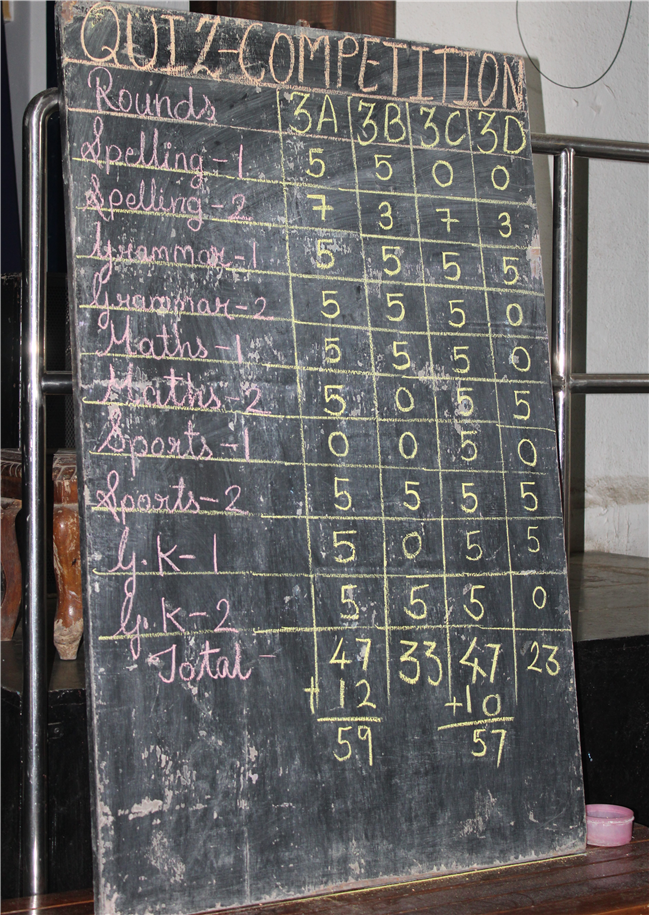 QUIZ-COMPETITION
Rounds 3A 3B 3C 3D
Spelling-1 5 5 0 0
Spelling-2 7 3 7 3
Grammar-1 5 5 5 5
Grammar-2 5 5 5 0
Maths-1 5 5 5 0
Maths-2 5 0 5 5
Sports-1 0 0 5 0
Sports-2 5 5 5 5
G.K-1 5 0 5 5
G.K-2 5 5 5 0
Total- 47 33 47 23
+12 +10
59 57